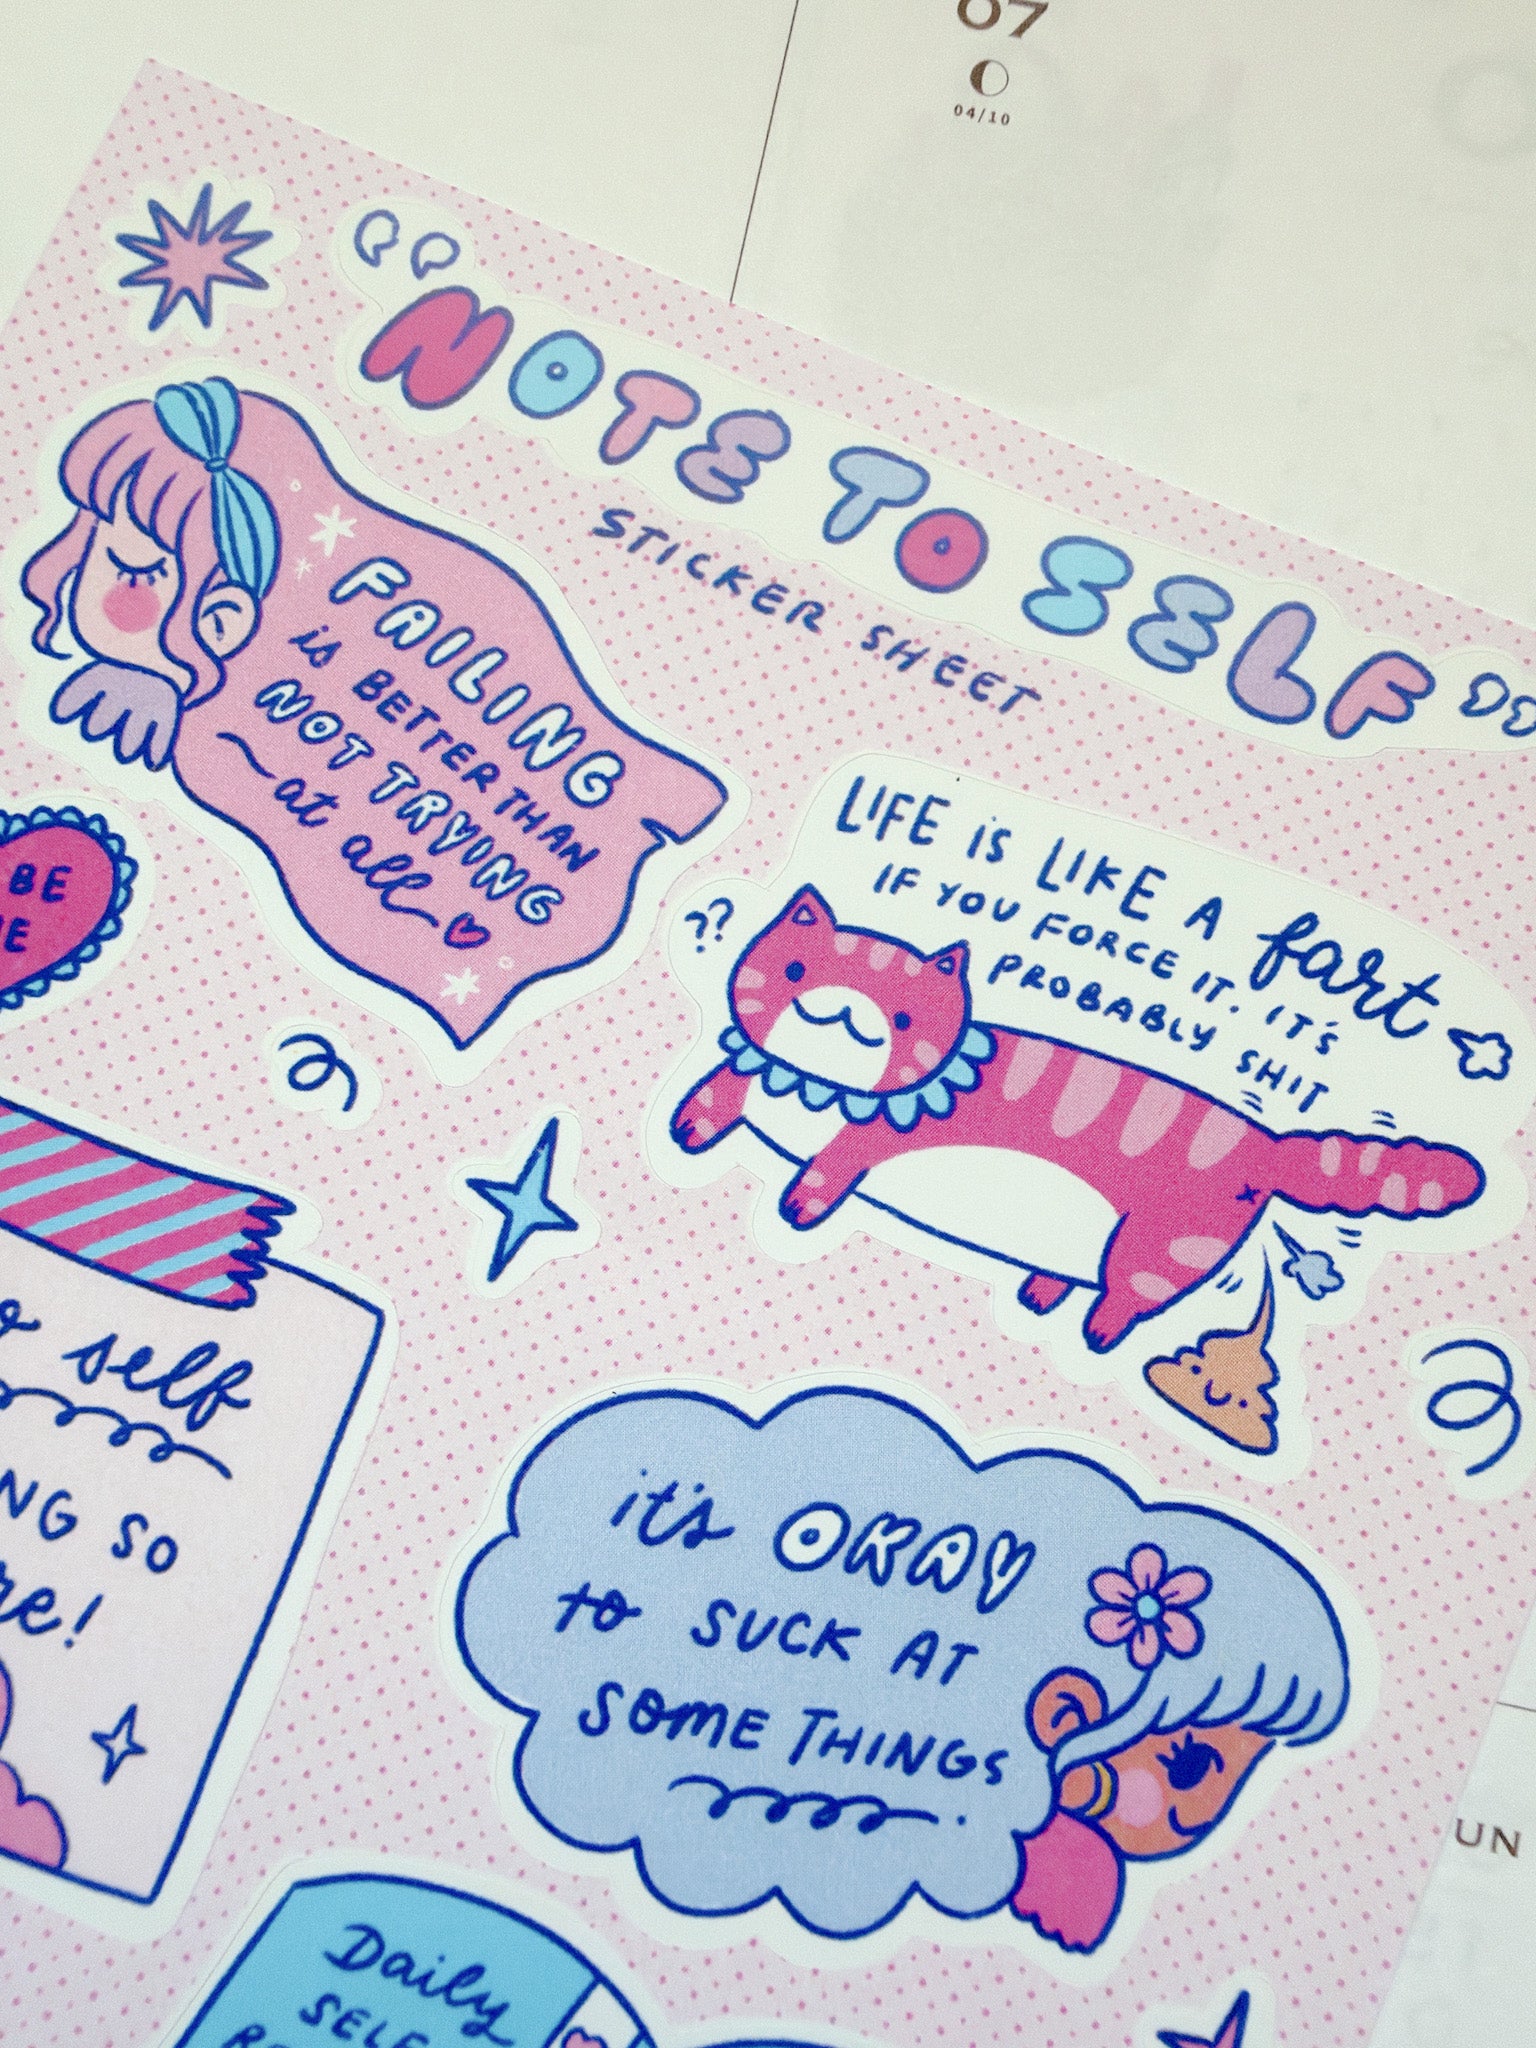 07
04/10
NOTE TO SELF
STICKER SHEET
FAILING
is BETTER THAN
NOT TRYING
at all
LIFE is LIKE A fart
IF YOU FORCE IT. IT'S
PROBABLY SHIT
??
BE
self
SO
it's OKAY
to SUCK AT
SOME THINGS
Daily
SELF
UN